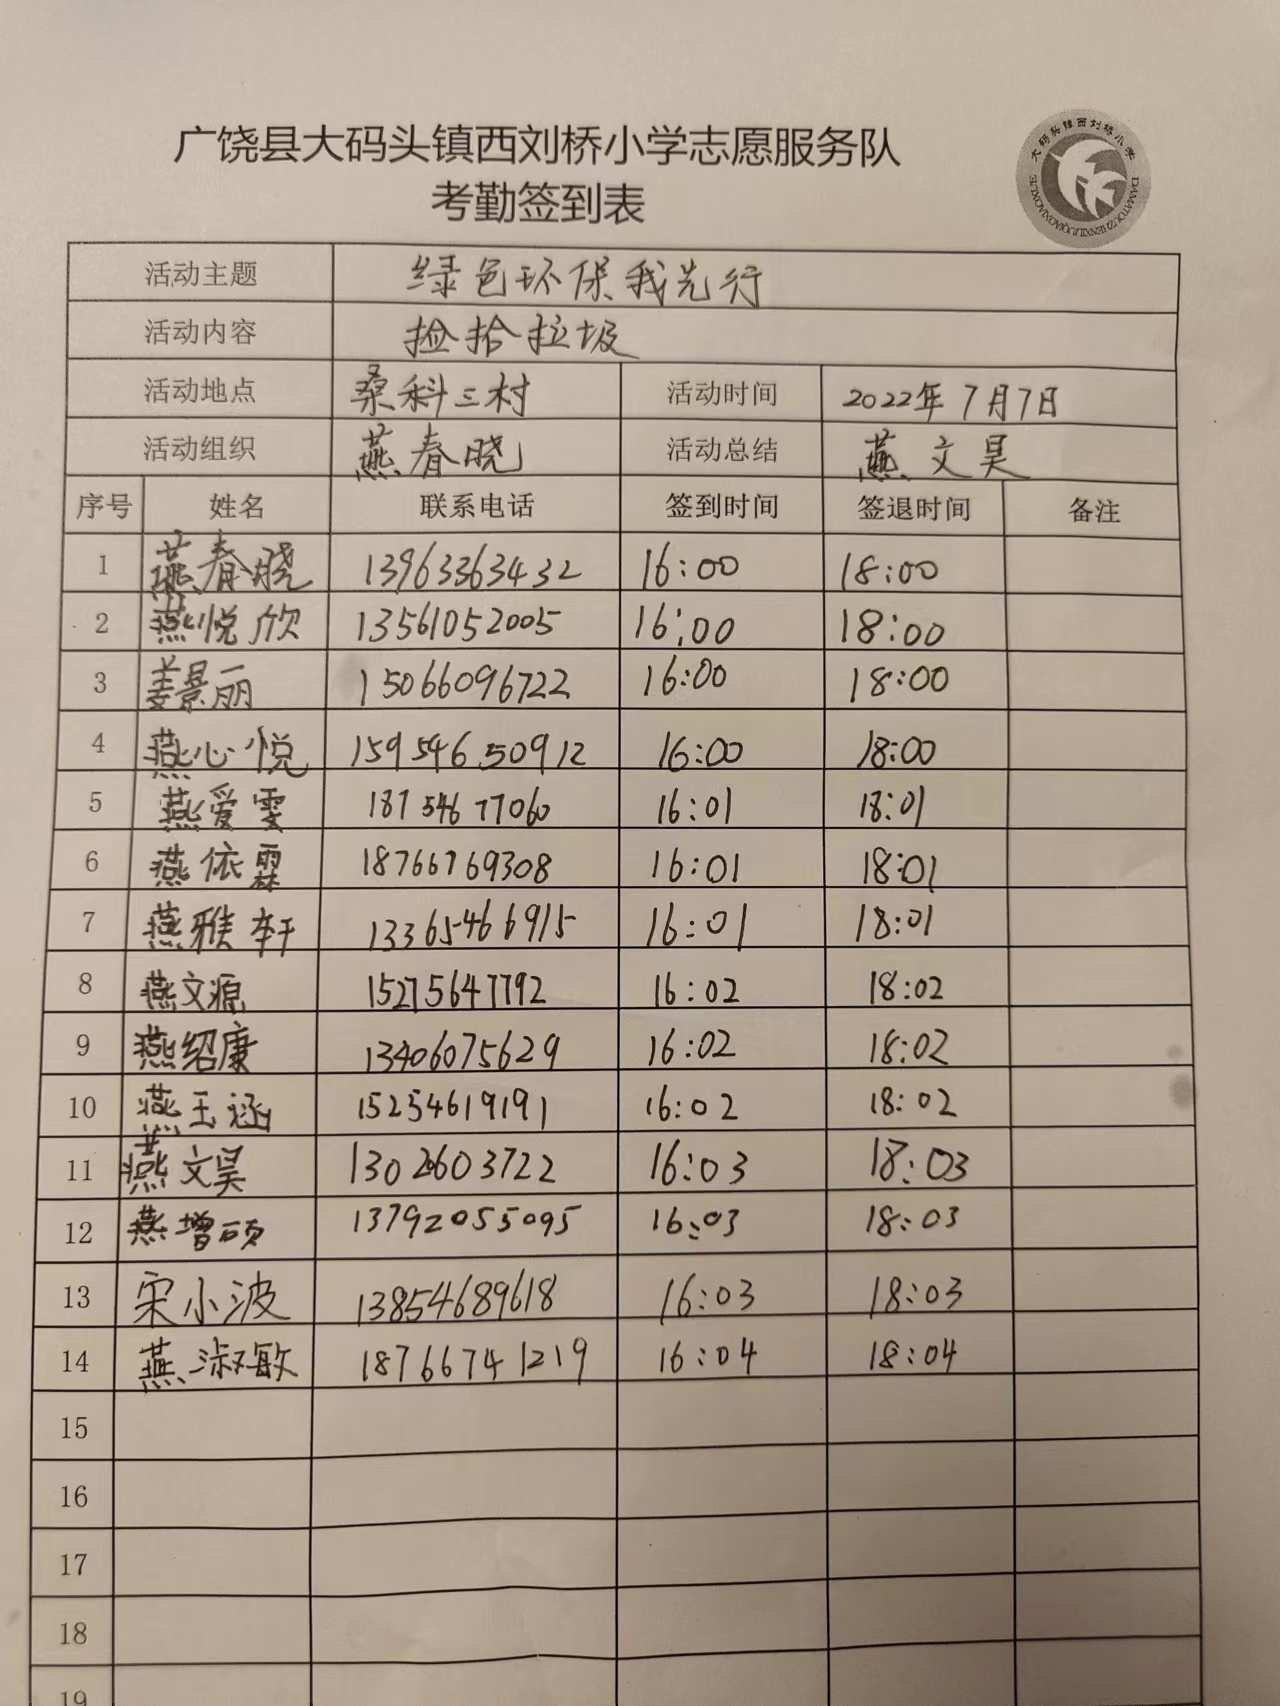 广饶县大码头镇西刘桥小学志愿服务队
考勤签到表
大码头镇西刘桥小学
活动主题 绿色环保我先行
活动内容 捡拾垃圾
活动地点 桑科三村 活动时间 2022年7月7日
活动组织 燕春晓 活动总结 燕文昊
序号 姓名 联系电话 签到时间 签退时间 备注
1 燕春晓 13963363432 16:00 18:00
2 燕悦欣 13561052005 16:00 18:00
3 姜景丽 15066096722 16:00 18:00
4 燕心悦 15954650912 16:00 18:00
5 燕爱雯 18754677060 16:01 18:01
6 燕依霖 18766769308 16:01 18:01
7 燕雅轩 13365466915 16:01 18:01
8 燕文源 15275647792 16:02 18:02
9 燕绍康 13406075629 16:02 18:02
10 燕玉涵 15254619191 16:02 18:02
11 燕文昊 1302603722 16:03 18:03
12 燕增硕 13792055095 16:03 18:03
13 宋小波 13854689618 16:03 18:03
14 燕淑敏 18766741219 16:04 18:04
15
16
17
18
19